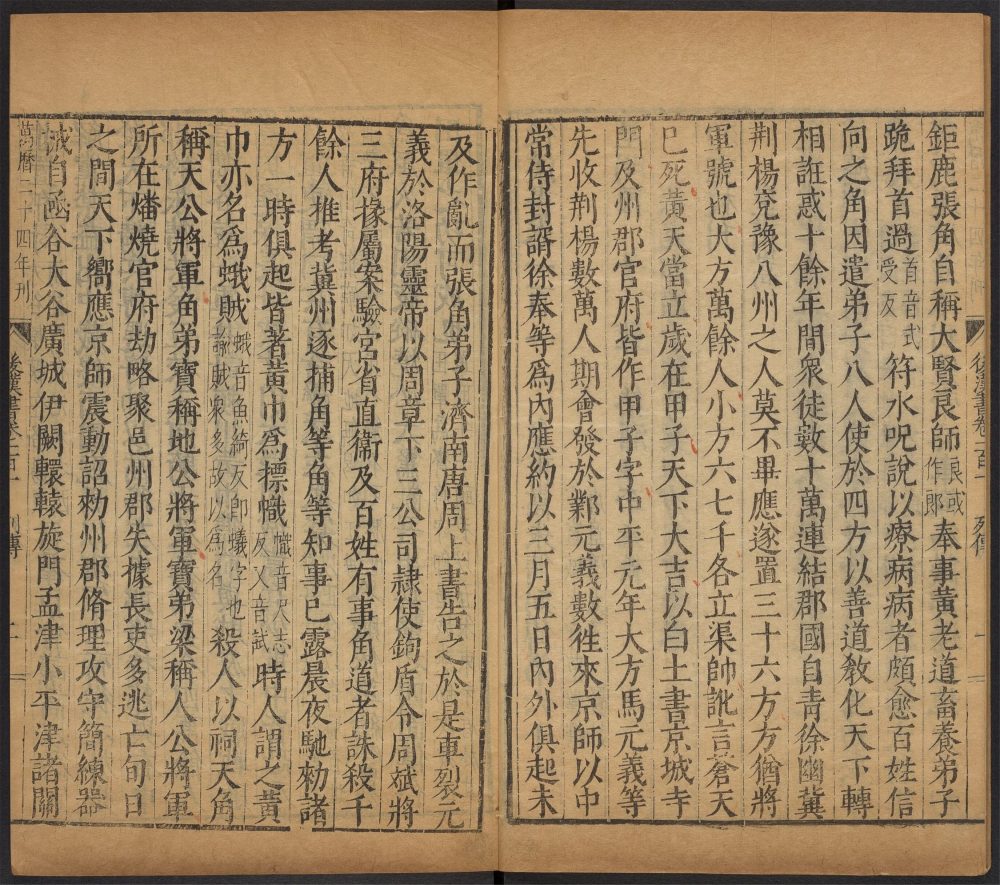 鉅鹿張角自稱大賢良師良或作郎奉事黃老道畜養弟子
跪拜首過首音式受反符水呪說以療病病者頗愈百姓信
向之角因遣弟子八人使於四方以善道教化天下轉
相誑惑十餘年間衆徒數十萬連結郡國自青徐幽冀
荆楊兗豫八州之人莫不畢應遂置三十六方方猶將
軍號也大方萬餘人小方六七千各立渠帥訛言蒼天
已死黃天當立歲在甲子天下大吉以白土書京城寺
門及州郡官府皆作甲子字中平元年大方馬元義等
先收荆楊數萬人期會發於鄴元義數徃來京師以中
常侍封諝徐奉等爲內應約以三月五日內外俱起未
後漢書卷一百一
列傳
一
及作亂而張角弟子濟南唐周上書告之於是車裂元
義於洛陽靈帝以周章下三公司隷使鉤盾令周斌將
三府掾屬案驗宮省直衞及百姓有事角道者誅殺千
餘人推考冀州逐捕角等角等知事已露晨夜馳勑諸
方一時俱起皆著黃巾爲標幟幟音尺志反又音試時人謂之黃
巾亦名爲蛾賊蛾音魚綺反即蟻字也諭賊衆多故以爲名殺人以祠天角
稱天公將軍角弟寶稱地公將軍寶弟梁稱人公將軍
所在燔燒官府劫略聚邑州郡失據長吏多逃亡旬日
之間天下嚮應京師震動詔勑州郡脩理攻守簡練器
械自函谷大谷廣城伊闕轘轅旋門孟津小平津諸關
萬曆二十四年刊
後漢書卷一百一
列傳
二